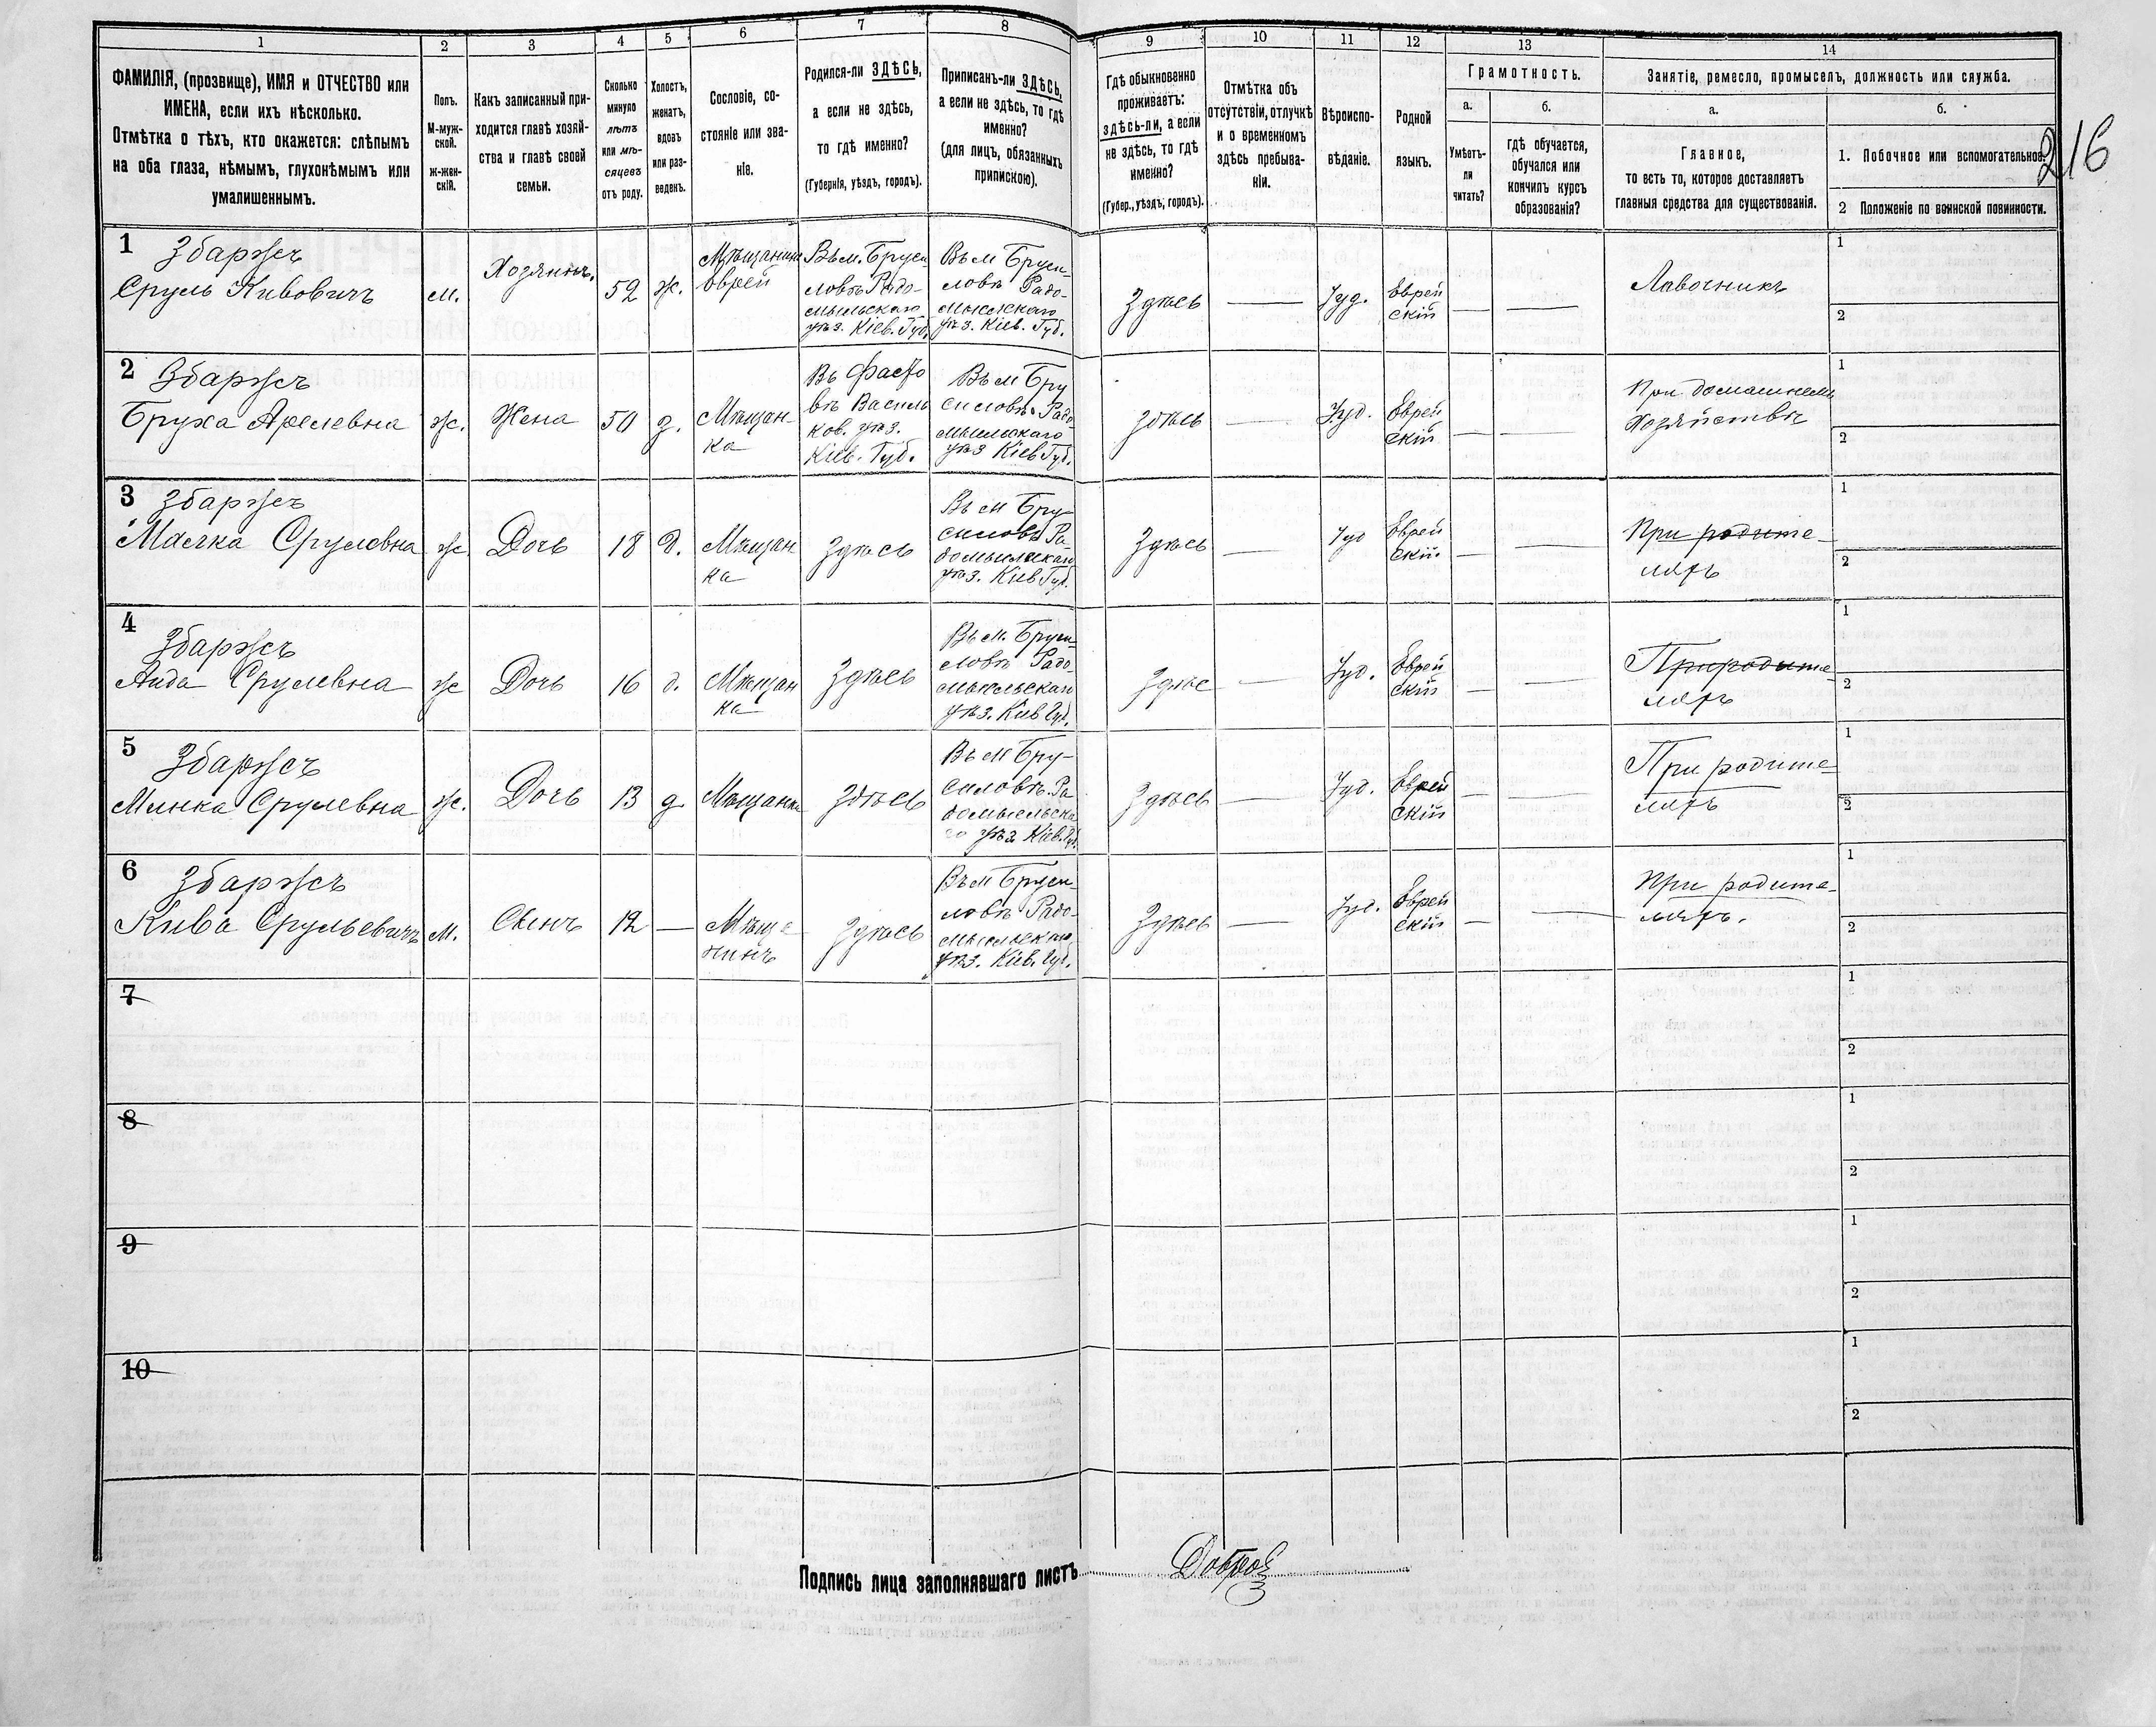 1 2 3 4 5 6 7 8 9 10 11 12 13 14
ФАМИЛІЯ, (прозвище), ИМЯ и ОТЧЕСТВО или
ИМЕНА, если ихъ нѣсколько.
Отмѣтка о тѣхъ, кто окажется: слѣпымъ
на оба глаза, нѣмымъ, глухонѣмымъ или
умалишеннымъ.
Полъ.
М-муж-
ской.
ж-жен-
скій.
Какъ записанный при-
ходится главѣ хозяй-
ства и главѣ своей
семьи.
Сколько
минуло
лѣтъ
или мѣ-
сяцевъ
отъ роду.
Холостъ,
женатъ,
вдовъ
или раз-
веденъ.
Сословіе, со-
стояніе или зва-
ніе.
Родился-ли ЗДѢСЬ,
а если не здѣсь,
то гдѣ именно?
(Губернія, уѣздъ, городъ).
Приписанъ-ли ЗДѢСЬ,
а если не здѣсь, то гдѣ
именно?
(для лицъ, обязанныхъ
припискою).
Гдѣ обыкновенно
проживаетъ:
здѣсь-ли, а если
не здѣсь, то гдѣ
именно?
(Губер., уѣздъ, городъ).
Отмѣтка объ
отсутствіи, отлучкѣ
и о временномъ
здѣсь пребыва-
ніи.
Вѣроиспо-
вѣданіе.
Родной
языкъ.
Грамотность.
а.
Умѣетъ-
ли
читать?
б.
гдѣ обучается,
обучался или
кончилъ курсъ
образованія?
Занятіе, ремесло, промыселъ, должность или служба.
а.
Главное,
то есть то, которое доставляетъ
главныя средства для существованія.
б.
1. Побочное или вспомогательное.
2 Положеніе по воинской повинности.
216
1
Збаржъ
Сруль Кивовичъ
м.
Хозяинъ.
52
ж.
Мѣщанинъ
еврей
Въ м. Бруси-
ловѣ Радо-
мыльскаго
уѣз. Кіев. Губ.
Въ м Бруси-
ловѣ Радо-
мыльскаго
уѣз. Кіев. Губ.
Здѣсь
—
Іуд.
Еврей
скій
—
—
Лавочникъ
1
2
2
Збаржъ
Бруха Арелевна
ж.
Жена
50
з.
Мѣщан-
ка
Въ Фасто
вѣ Василь
ков. уѣз.
Кіев. Губ.
Въ м Бру
силовѣ Радо
мыльскаго
уѣз Кіев Губ.
здѣсь
—
Іуд.
Еврей
скій
—
—
При домашнемъ
хозяйствѣ
1
2
3
Збаржъ
Малка Срулевна
ж
Дочь
18
д.
Мѣщан
ка
Здѣсь
Въ м Бру-
силовѣ Ра-
домыльскаго
уѣз. Кіев Губ.
Здѣсь
—
Іуд
Еврей
скій.
—
—
При родите-
ляхъ
1
2
4
Збаржъ
Аида Срулевна
ж
Дочь
16
д.
Мѣщан
ка
Здѣсь
Въ м. Бруси-
ловѣ Радо
мыльскаго
уѣз. Кіев Губ.
Здѣс
—
Іуд.
Еврей
скій
—
—
При родите
ляхъ
1
2
5
Збаржъ
Минка Срулевна
ж.
Дочь
13
д.
Мѣщанка
Здѣсь
Въ м Бру-
силовѣ. Ра
домыльска
го уѣз Кіев. Губ.
Здѣсь
—
Іуд.
Еврей
скій
—
—
При родите-
ляхъ
1
2
6
Збаржъ
Кива Срульевичъ
м.
Сынъ
12
—
Мѣща
нинъ
Здѣсь
Въ м Бруси-
ловѣ Радо-
мыльскаго
уѣз. Кіев. Губ.
Здѣсь
—
Іуд.
Еврей
скій
—
—
При родите-
ляхъ.
1
2
7
1
2
8
1
2
9
1
2
10
1
2
Подпись лица заполнявшаго листъ